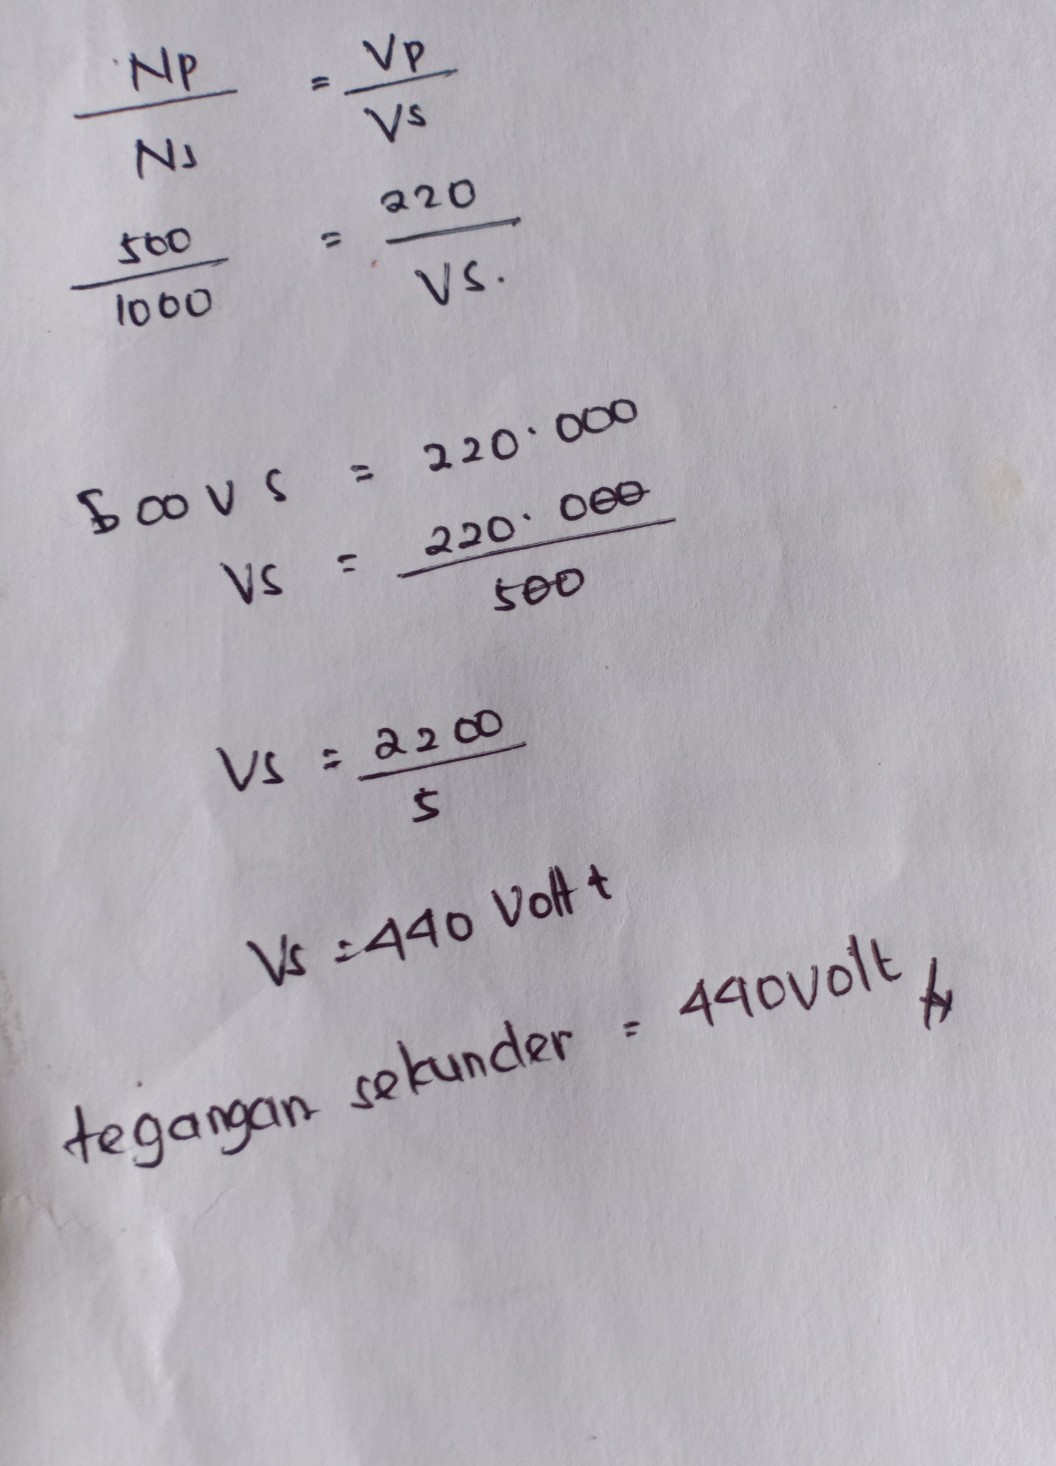 Np = Vp
Ns Vs
500 = 220
1000 Vs.
500 Vs = 220.000
Vs = 220.000
500
Vs = 2200
5
Vs = 440 Voltt
tegangan sekunder = 440 volt